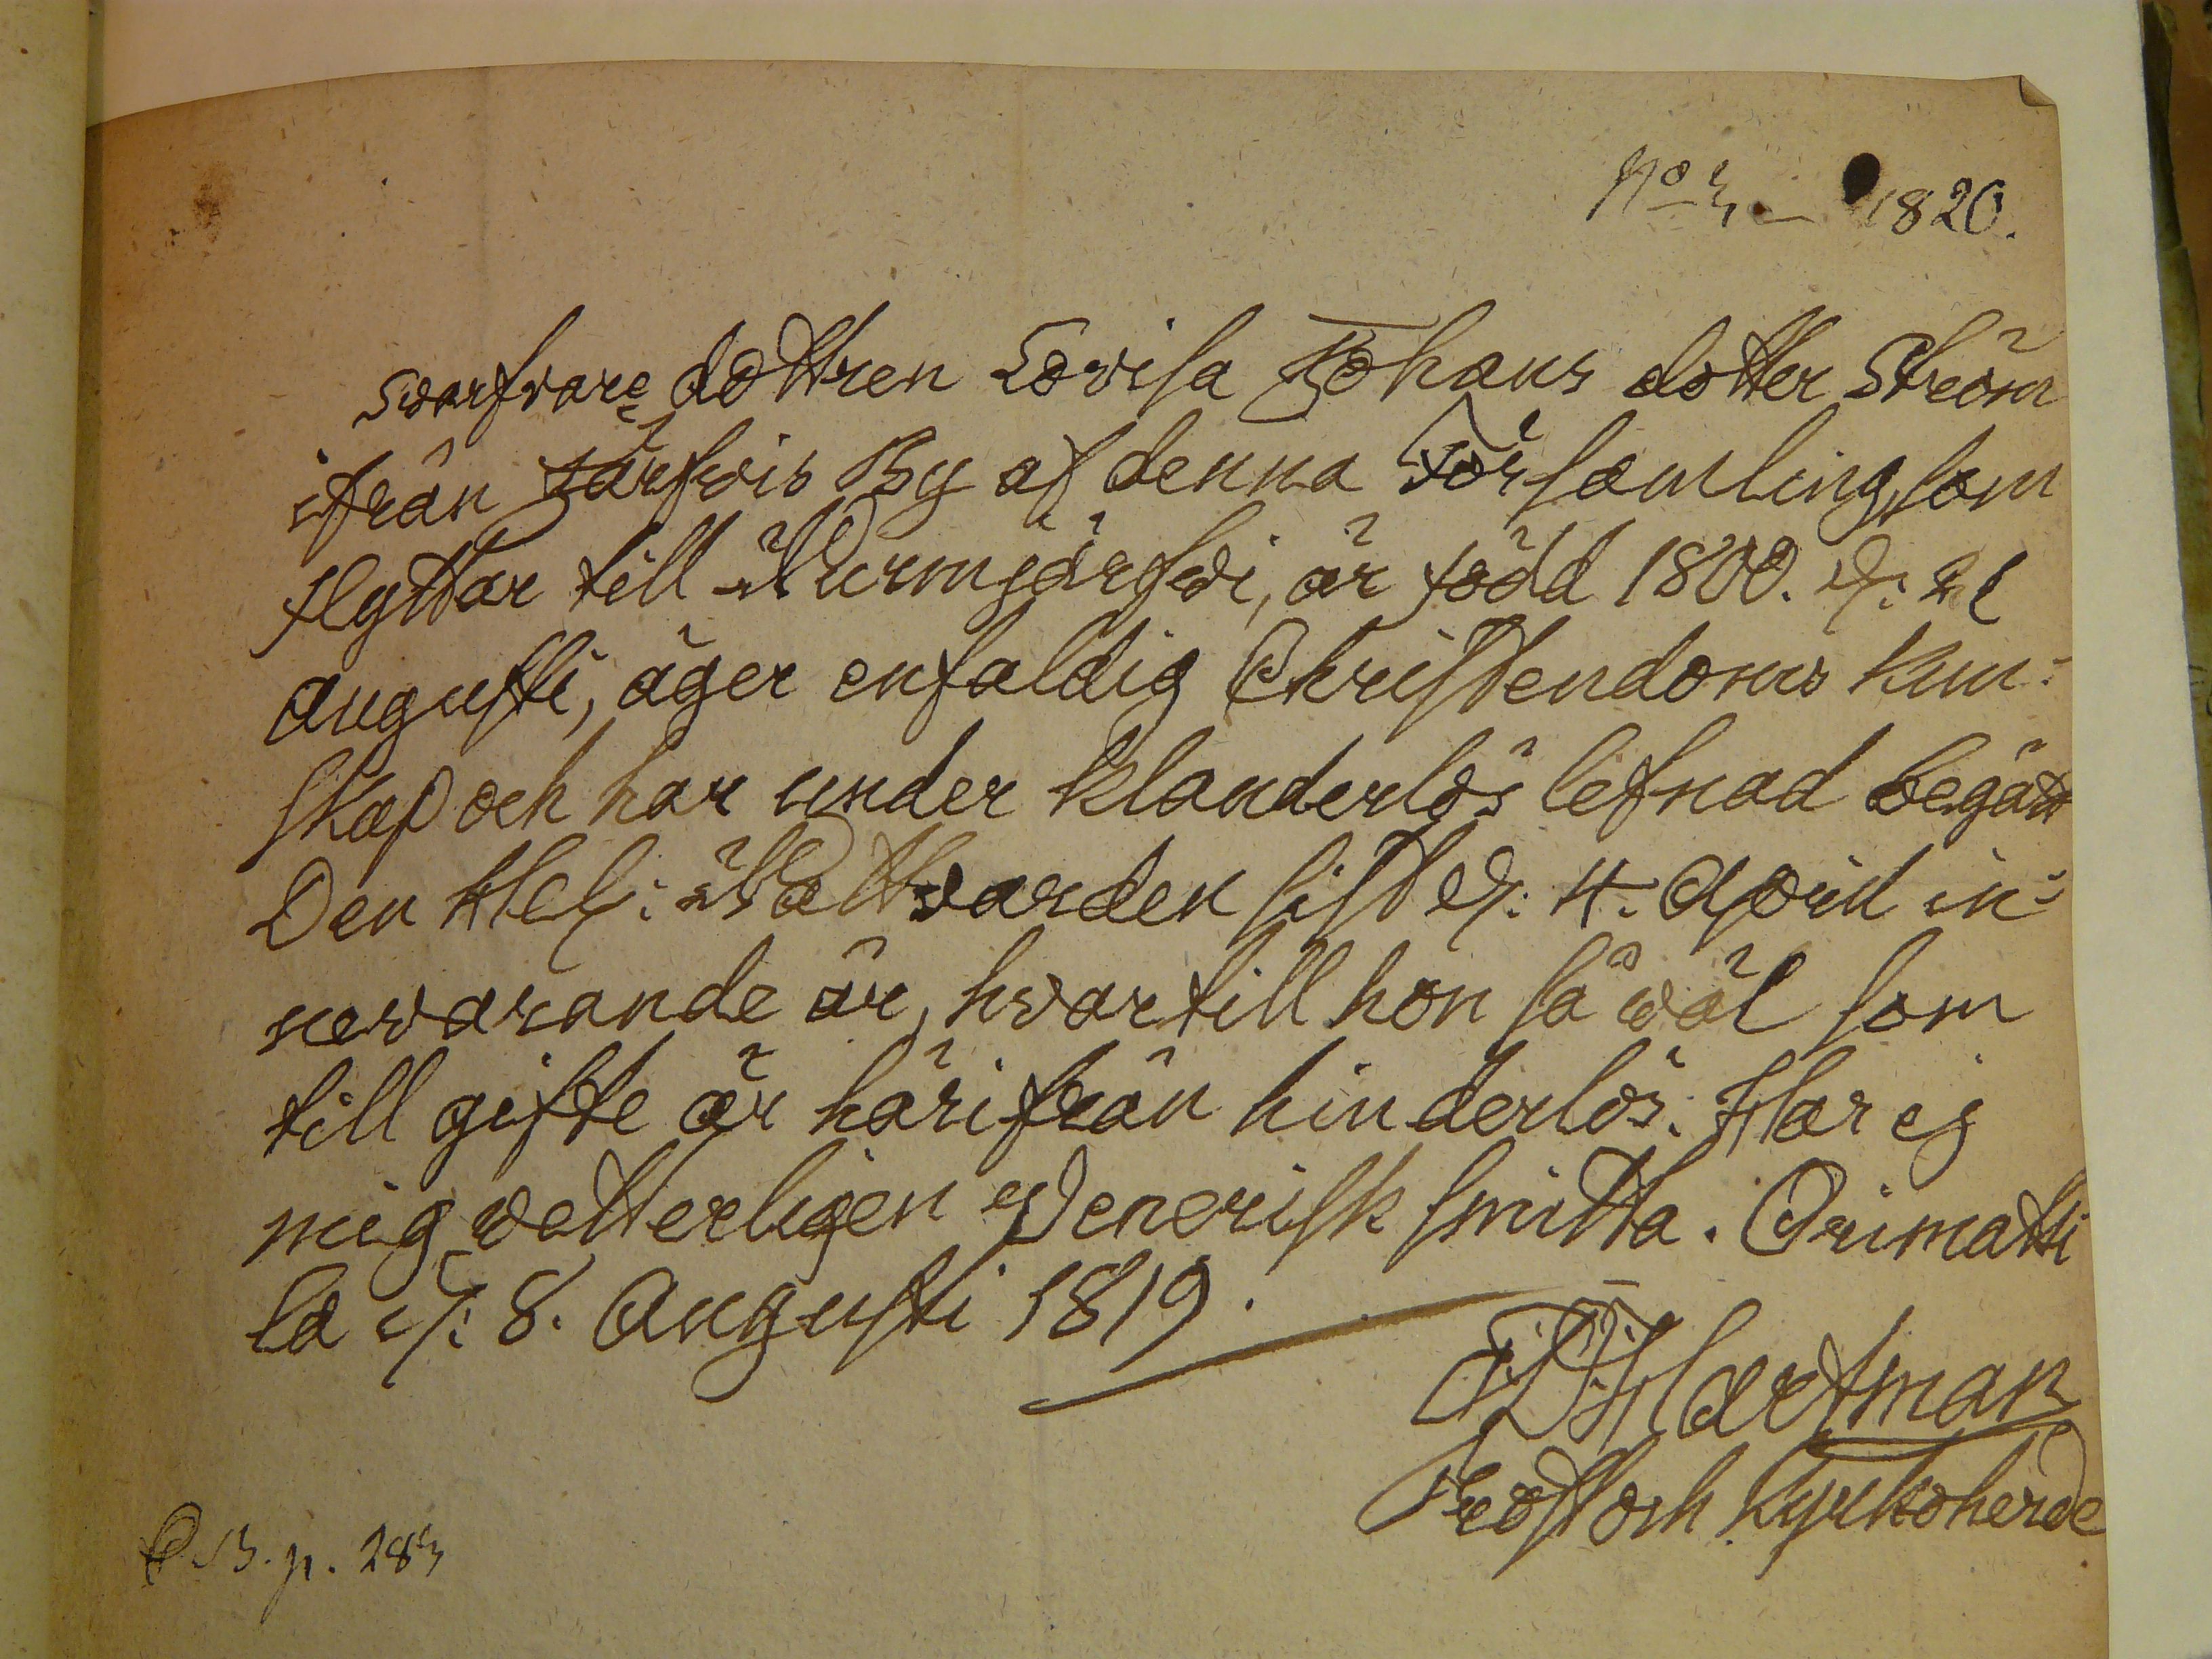 No 3. — 1820.
Svarfvare dottren Lovisa Johans dotter Ström
ifrån Järfvis By af denna Församling, som
flyttar till Nurmijärfvi, är född 1800. d: 21
Augusti, äger enfaldig Christendoms kun-
skap och har under klanderlös lefnad begått
Den Hel: Nattvarden sist d: 4. April in-
nevarande år, hvartill hon så väl som
till gifte är härifrån hinderlös. Har ej
mig vetterligen Venerisk smitta. Orimatti
la d: 8. Augusti 1819.
Hartman
Prost och Kyrkoherde
C.B. p. 283